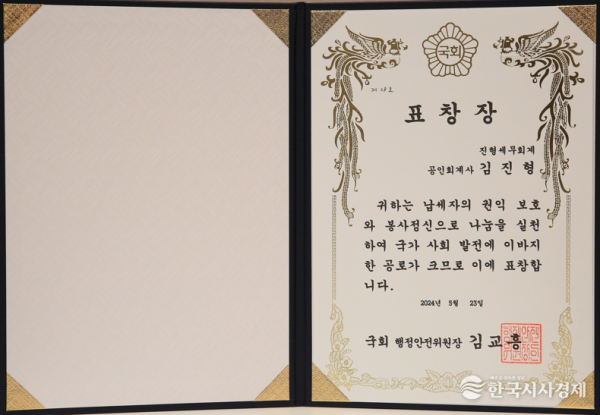 국회
표창장
진형세무회계
공인회계사 김진형
귀하는 납세자의 권익 보호
와 봉사정신으로 나눔을 실천
하여 국가 사회 발전에 이바지
한 공로가 크므로 이에 표창합
니다.
2024년 5월 23일
국회 행정안전위원장 김교흥
한국시사경제